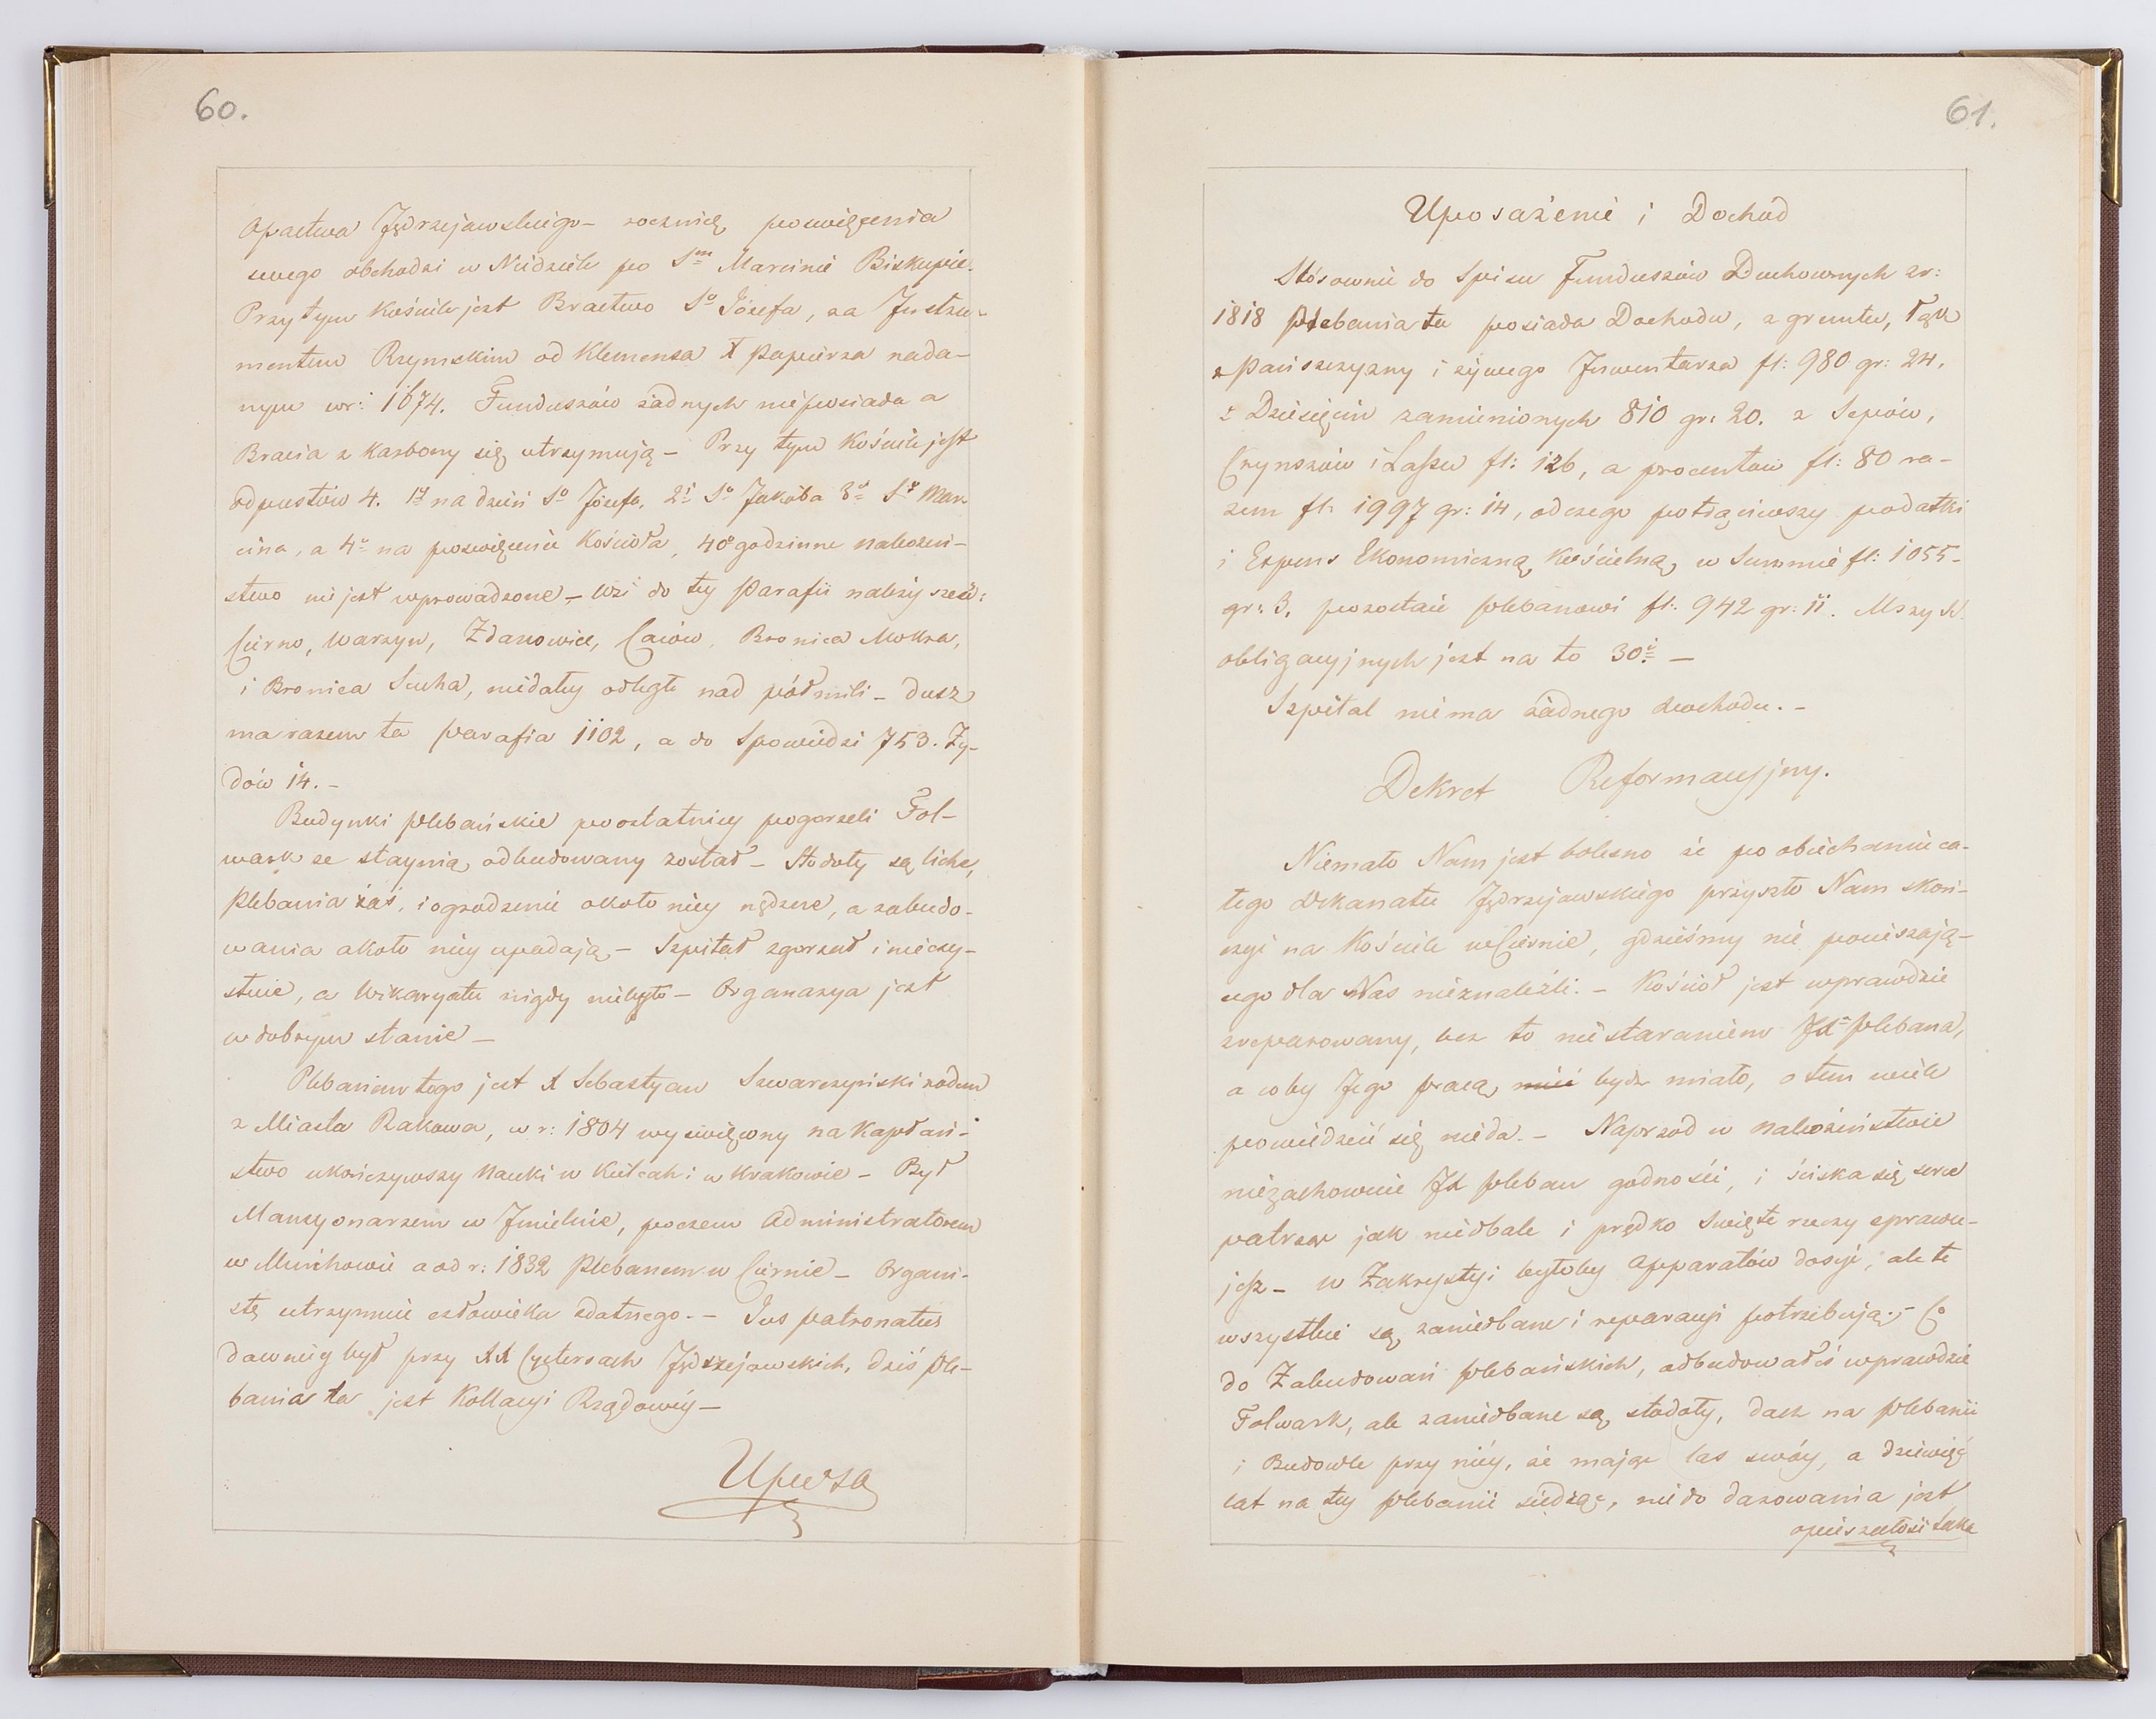 60.
Opactwa Jędrzejawskiego – rocznicę poswięcenia
swego obchodzi w Niedziele po Sm Marcinie Biskupie.
Przytym kościele jest Bractwo So Józefa, za Jnstru-
mentem Rzymskim od Klemensa X papieża nada-
nym w r: 1674. Funduszów żadnych nieposiada a
Bracia z karbony się utrzymują – Przy tym kościele jest
odpustów 4. 1y na dzień So Józefa, 2i So Jakóba 3i So Mar-
cina, a 4y na poswięcenie Kościoła, 40o godzinne nabożeń-
stwo nie jest wprowadzone – Wsi do tey Parafii należy sześć:
Cierno, Warzyn, Zdanowice, Caców, Bronica Mokra,
i Bronica Sucha, niedaley odległe nad pół mili – dusz
ma razem ta parafia 1102, a do Spowiedzi 753. Ży-
dów 14. –
Budynki plebańskie po ostatniey pogorzeli Fol-
wark ze staynią odbudowany został – Stodoły są liche,
plebania zaś, i ogrodzenie około niey nędzne, a zabudo-
wania około niey upadają – Szpital zgorzał i nieczy-
stnie, a Wikaryatu nigdy niebyło – Organarya jest
w dobrym stanie –
Plebaniem tego jest X Sebastyan Szwarczyński rodem
z Miasta Rakowa, w r: 1804 wyswięcony na Kapłań-
stwo ukończywszy nauki w Kielcach i w Krakowie – Był
Mansyonarzem w Jmielnie, poczem Administratorem
w Mnichowie a od r: 1832 Plebanem w Ciernie – Organi-
stę utrzymuie człowieka zdatnego. – Jus patronatus
dawniey był przy XX Cystersach Jędrzejowskich, dziś ple-
bania ta jest Kollacyi Rządowéy –
61.
Uposażenie i Dochod
Stósownie do Spisu Funduszów Duchownych z r:
1818 Plebania ta posiada Dochodu, z gruntu, łąk
z pańszczyzny i żywego Jnwentarza fl: 980 gr: 24.
z Dziesięcin zamienionych 810 gr: 20. z Sepów,
Czynszów i Lassu fl: 126, a procentów fl: 80 ra-
zem fl: 1997 gr: 14, od czego potrąciwszy podatki
i Expens Ekonomiczną, kościelną, w Summie fl: 1055 –
gr: 3. pozostaie plebanowi fl: 942 gr: 11. Mszy S.
obligacyjnych jest na to 30. –
Szpital niema żadnego dochodu. –
Dekret Reformacyjny.
Niemało Nam jest bolesno że po obiechaniu ca-
łego dekanatu Jędrzejawskiego przyszło Nam skoń-
czyć na Kościele w Ciernie, gdzieśmy nic pocieszają-
cego dla Nas nieznaleźli. – Kościoł jest wprawdzie
zreparowany, lecz to niestaraniem JX plebana,
a coby Jego pracą bydź miało, o tem wiele
powiedzieć się nieda. – Naprzod w nabożeństwie
niezachowuie JX pleban godności, i ściska się serce
patrząc jak niedbale i prędko Swięte rzeczy sprawu-
jesz – w Zakrystyi byłoby Apparatów dosyć, ale te
wszystkie są zaniedbane i reparacyi potrzebują. – Co
do Zabudowań plebańskich, odbudowałeś wprawdzie
Folwark, ale zaniedbane są stodoły, dach na plebanii
i Budowle przy niéy, że mając las swóy, a dziewięć
lat na tey plebanii siedząc, nie do darowania jest
opieszałość taka